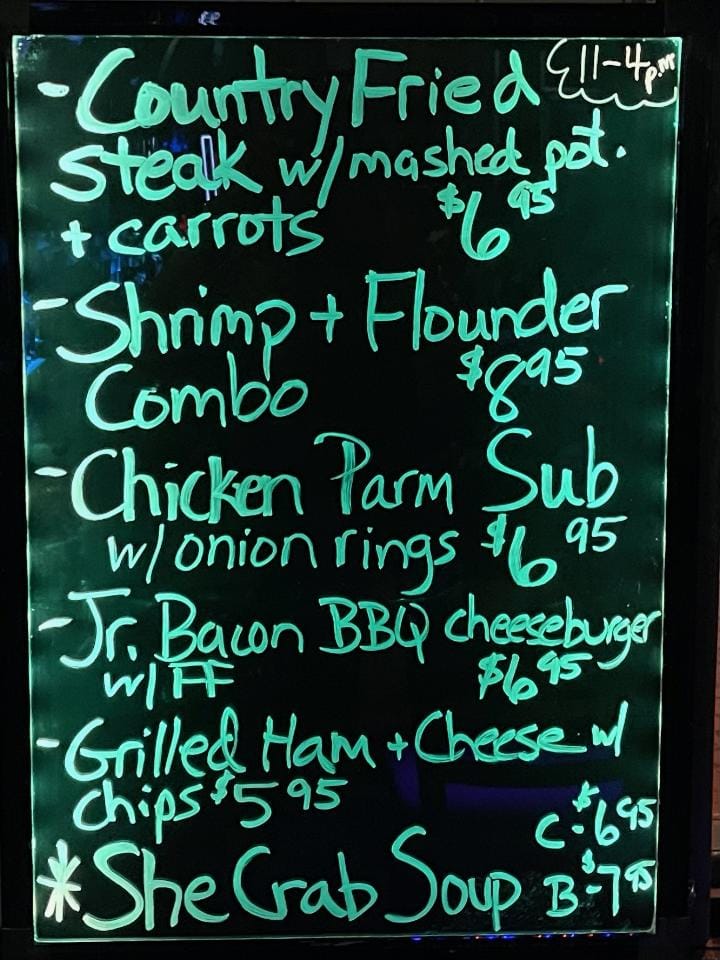 - Country Fried 11-4 p.m
steak w/mashed pot.
+ carrots $6 95
- Shrimp + Flounder
Combo $8 95
- Chicken Parm Sub
w/onion rings $6 95
- Jr. Bacon BBQ cheeseburger
w/FF $6 95
- Grilled Ham + Cheese w/
chips $5 95
C-$6 95
* She Crab Soup B-$7 95